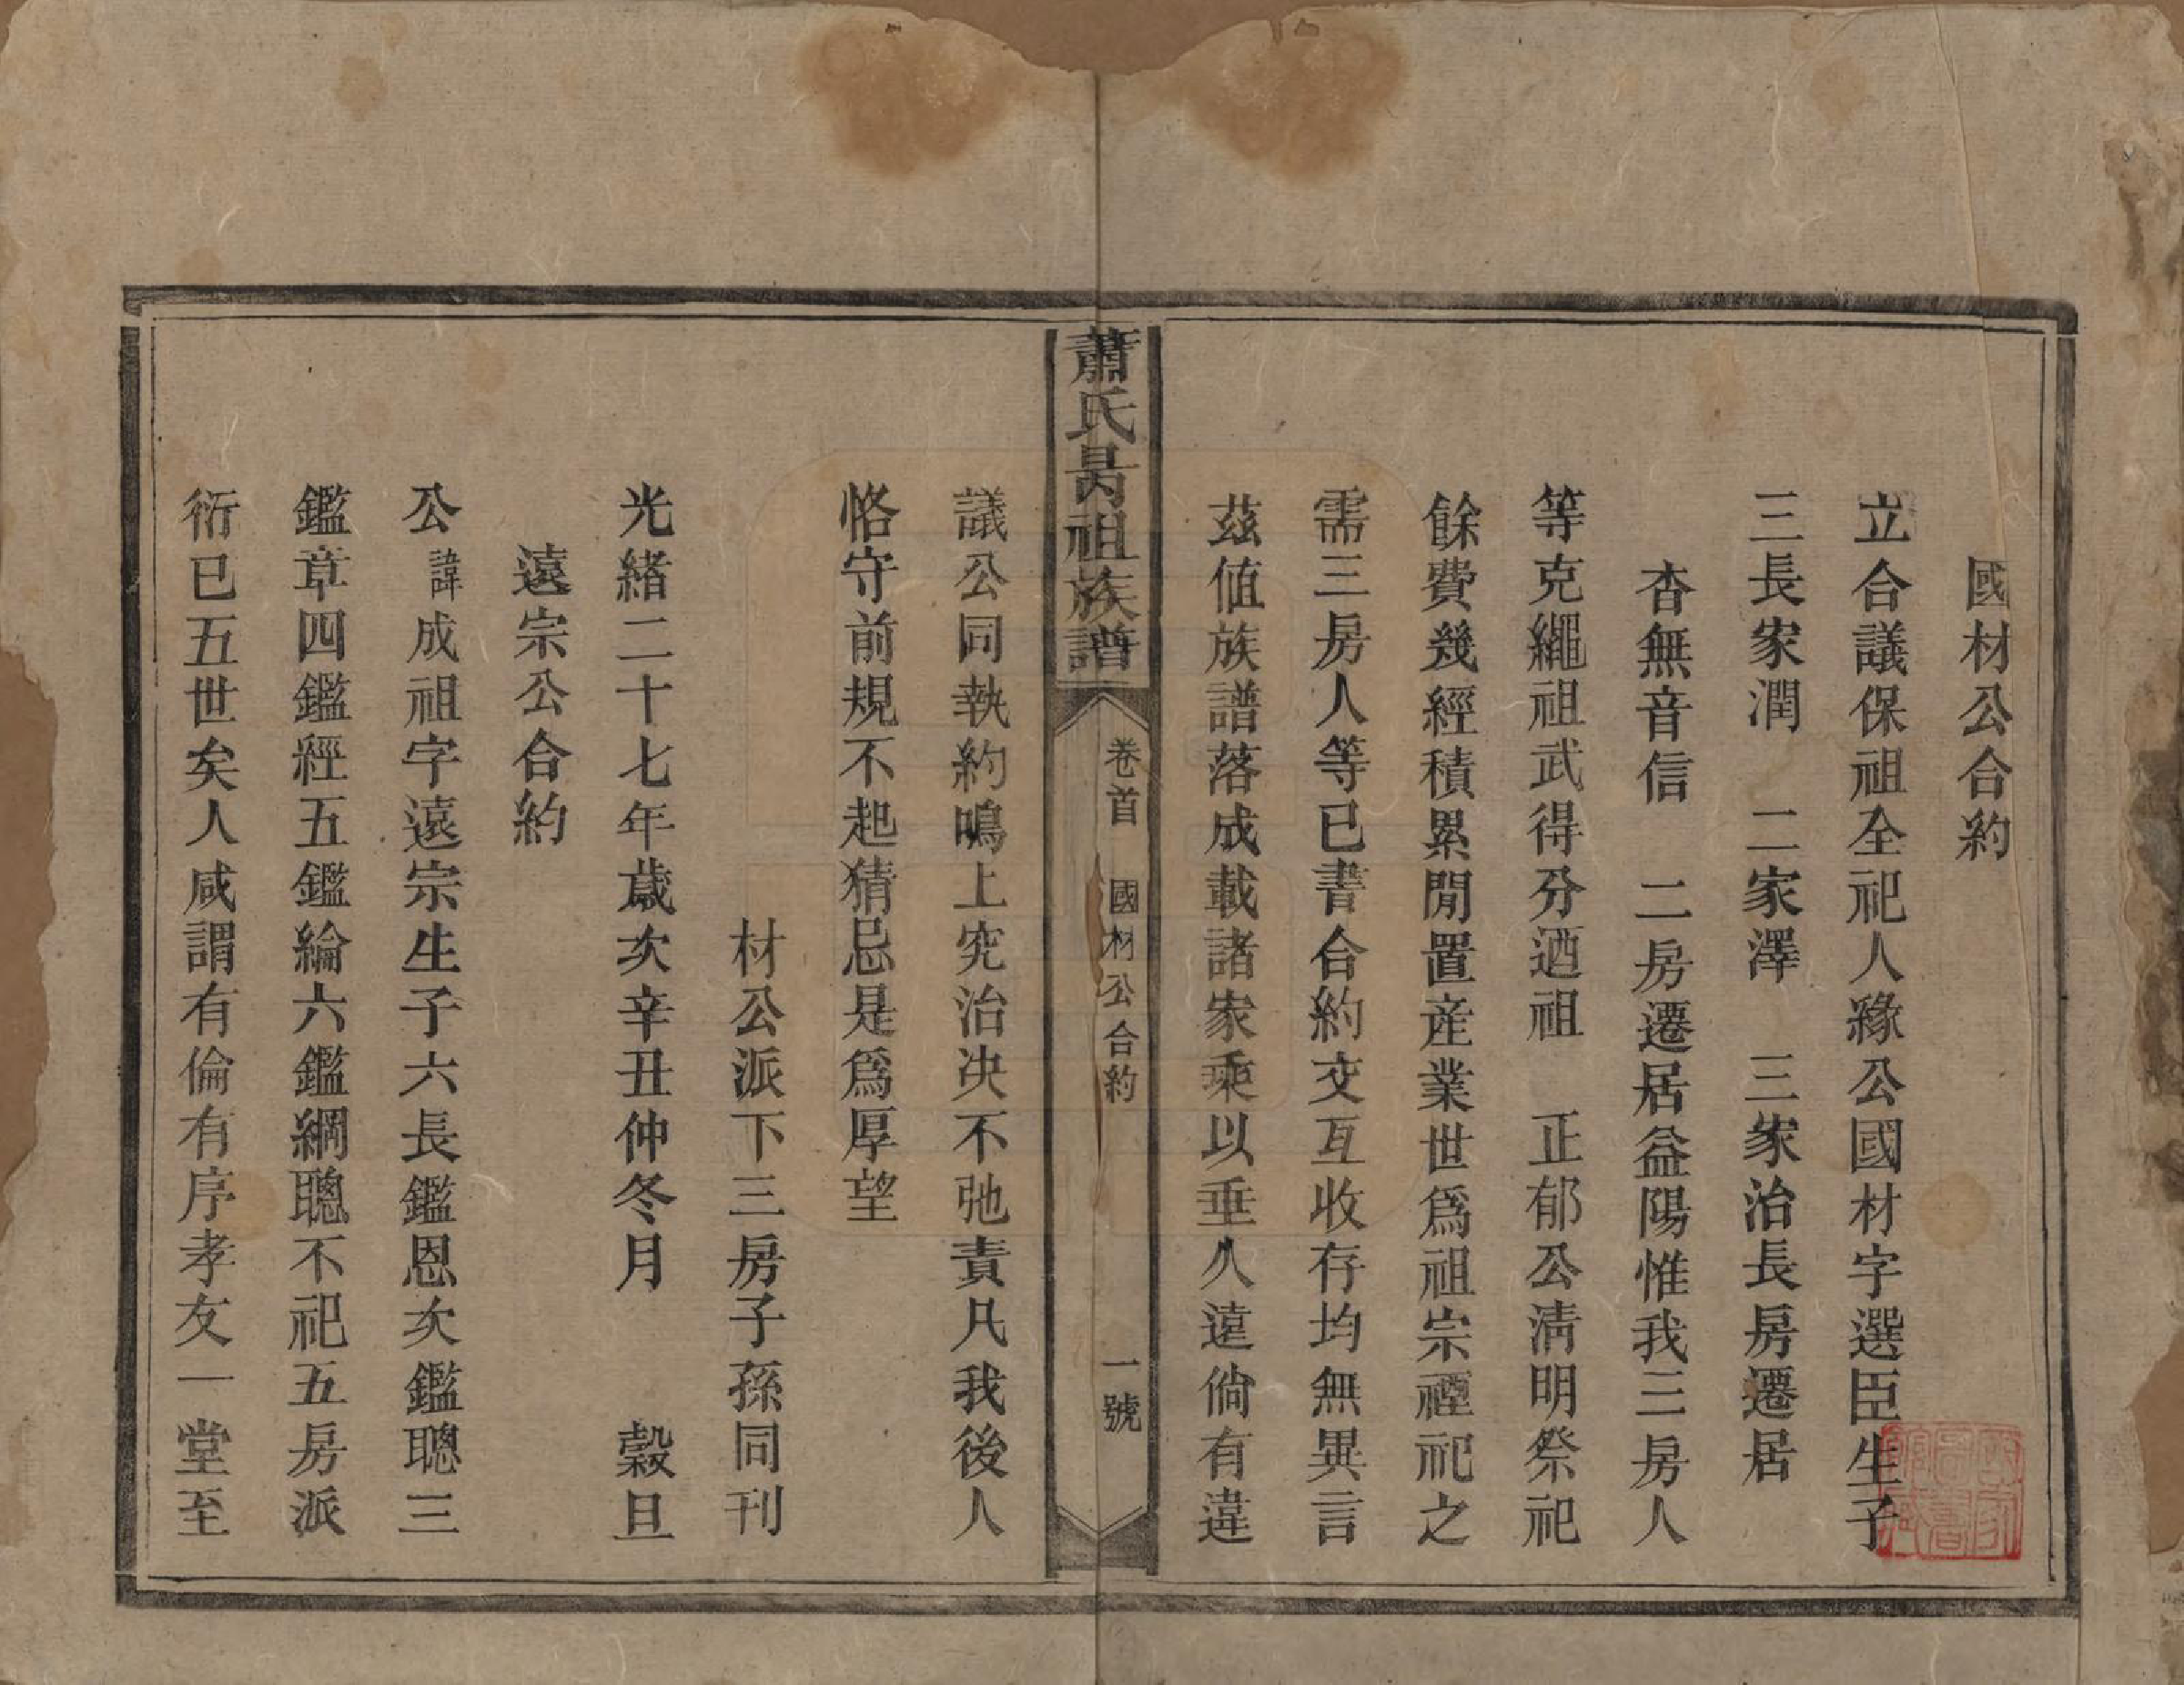 國材公合約
立合議保祖全祀人緣公國材字選臣生子
三長家潤　二家澤　三家治長房遷居
杳無音信　二房遷居益陽惟我三房人
等克繩祖武得分迺祖　正郁公淸明祭祀
餘費幾經積累閒置產業世爲祖宗禋祀之
需三房人等已書合約交互收存均無異言
茲值族譜落成載諸家乘以垂久遠倘有違
蕭氏昺祖族譜
卷首　國材公合約　一號
議公同執約鳴上究治决不弛責凡我後人
恪守前規不起猜忌是爲厚望
材公派下三房子孫同刊
光緒二十七年歲次辛丑仲冬月　穀旦
遠宗公合約
公諱成祖字遠宗生子六長鑑恩次鑑聰三
鑑章四鑑經五鑑綸六鑑綱聰不祀五房派
衍已五世矣人咸謂有倫有序孝友一堂至